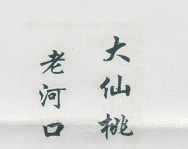 大仙桃
老河口